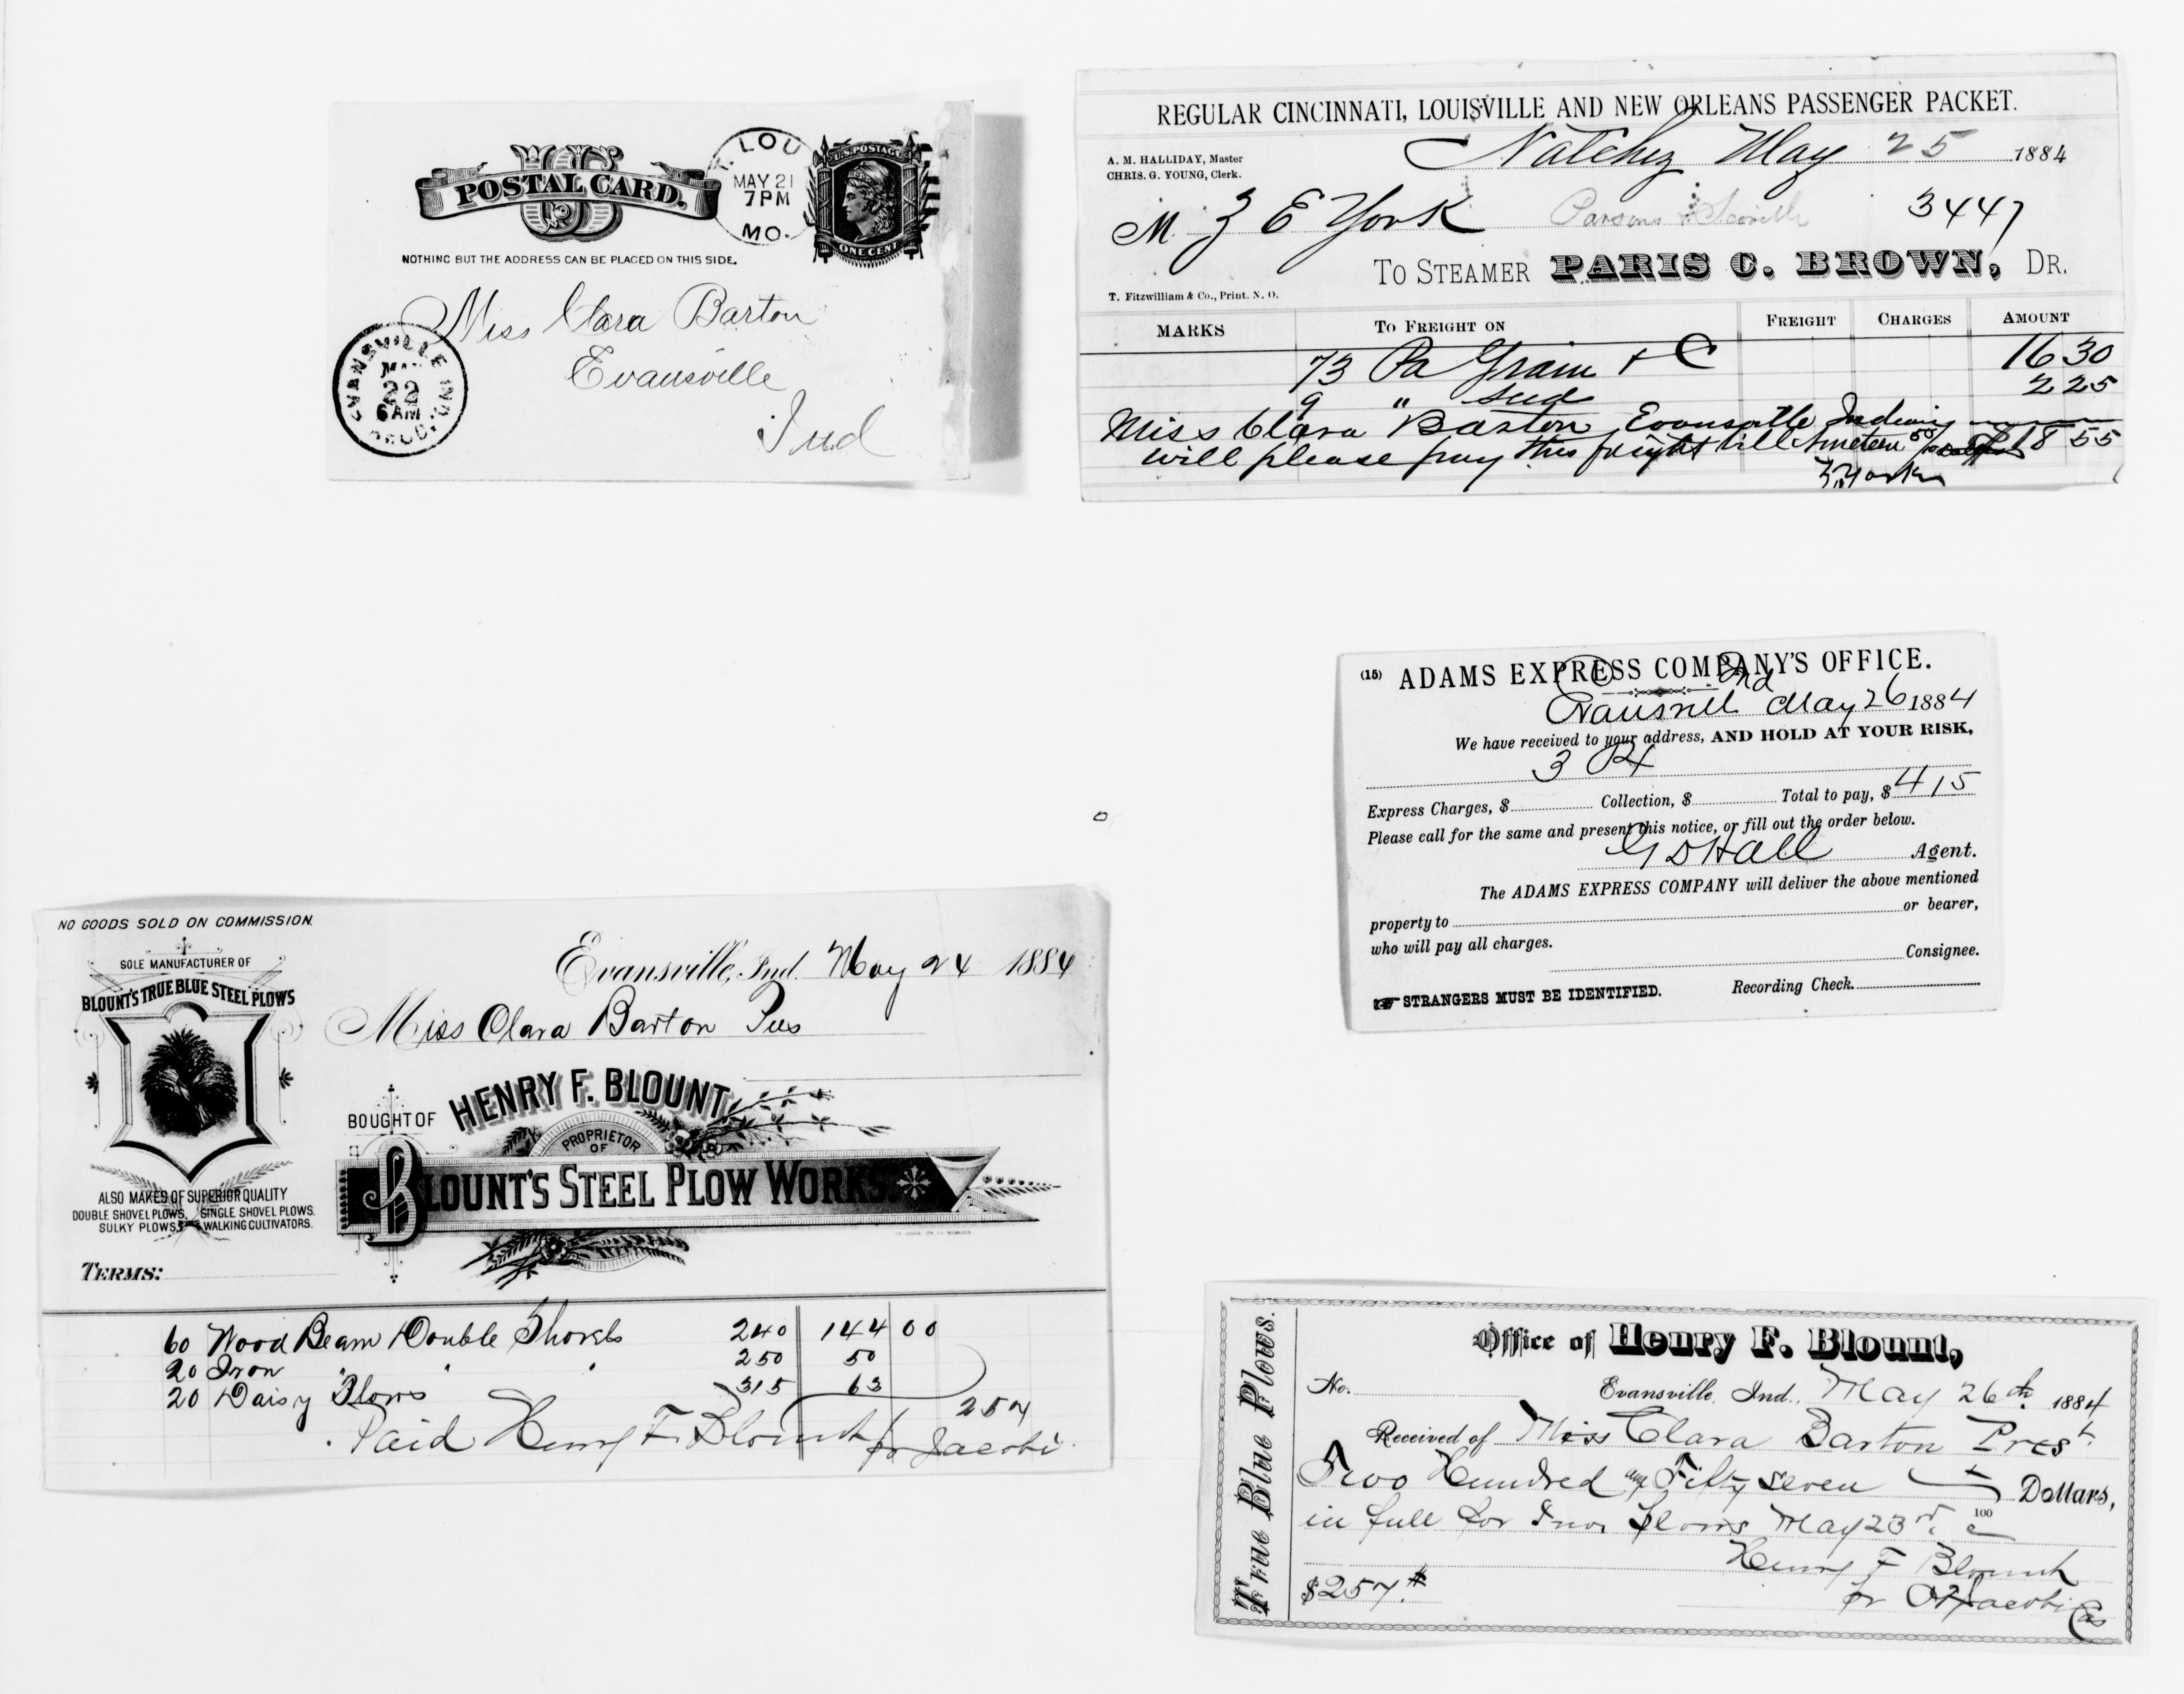 POSTAL CARD.
U.S. POSTAGE
ONE CENT
LOU
MAY 21
7 PM
MO.
NOTHING BUT THE ADDRESS CAN BE PLACED ON THIS SIDE.
Miss Clara Barton
Evansville
Ind
EVANSVILLE IND.
22
6 AM
REC'D.
REGULAR CINCINNATI, LOUISVILLE AND NEW ORLEANS PASSENGER PACKET.
Natchez May 25 1884
A. M. HALLIDAY, Master
CHRIS. G. YOUNG, Clerk.
M. Z E York Parsons & 3447
TO STEAMER PARIS C. BROWN, DR.
T. Fitzwilliam & Co., Print. N. O.
MARKS TO FREIGHT ON FREIGHT CHARGES AMOUNT
73 Pa Grain & C 16 30
9 " 2 25
Miss Clara Barton Evansville Indiana
will please pay this freight bill 18 55
(15) ADAMS EXPRESS COMPANY'S OFFICE.
Evansvill Ind May 26 1884
We have received to your address, AND HOLD AT YOUR RISK,
3
Express Charges, $ Collection, $ Total to pay, $ 415
Please call for the same and present this notice, or fill out the order below.
G D Hall Agent.
The ADAMS EXPRESS COMPANY will deliver the above mentioned
property to or bearer,
who will pay all charges.
Consignee.
☞ STRANGERS MUST BE IDENTIFIED. Recording Check.
NO GOODS SOLD ON COMMISSION.
SOLE MANUFACTURER OF
BLOUNT'S TRUE BLUE STEEL PLOWS
ALSO MAKES OF SUPERIOR QUALITY
DOUBLE SHOVEL PLOWS, SINGLE SHOVEL PLOWS.
SULKY PLOWS, WALKING CULTIVATORS.
TERMS:
Evansville, Ind. May 24 1884
Miss Clara Barton Pres
BOUGHT OF HENRY F. BLOUNT,
PROPRIETOR
OF
BLOUNT'S STEEL PLOW WORKS.
60 Wood Beam Double Shovels 240 144 00
20 Iron " " 250 50
20 Daisy Plows 315 63
257
Paid Henry F. Blount pr Jacobi
True Blue Plows.
Office of Henry F. Blount,
No. Evansville, Ind., May 26th 1884
Received of Miss Clara Barton Prest.
Two Hundred and Fifty seven Dollars,
100
in full for Inv. Plows May 23rd
Henry F Blount
$257. pr Jacobi